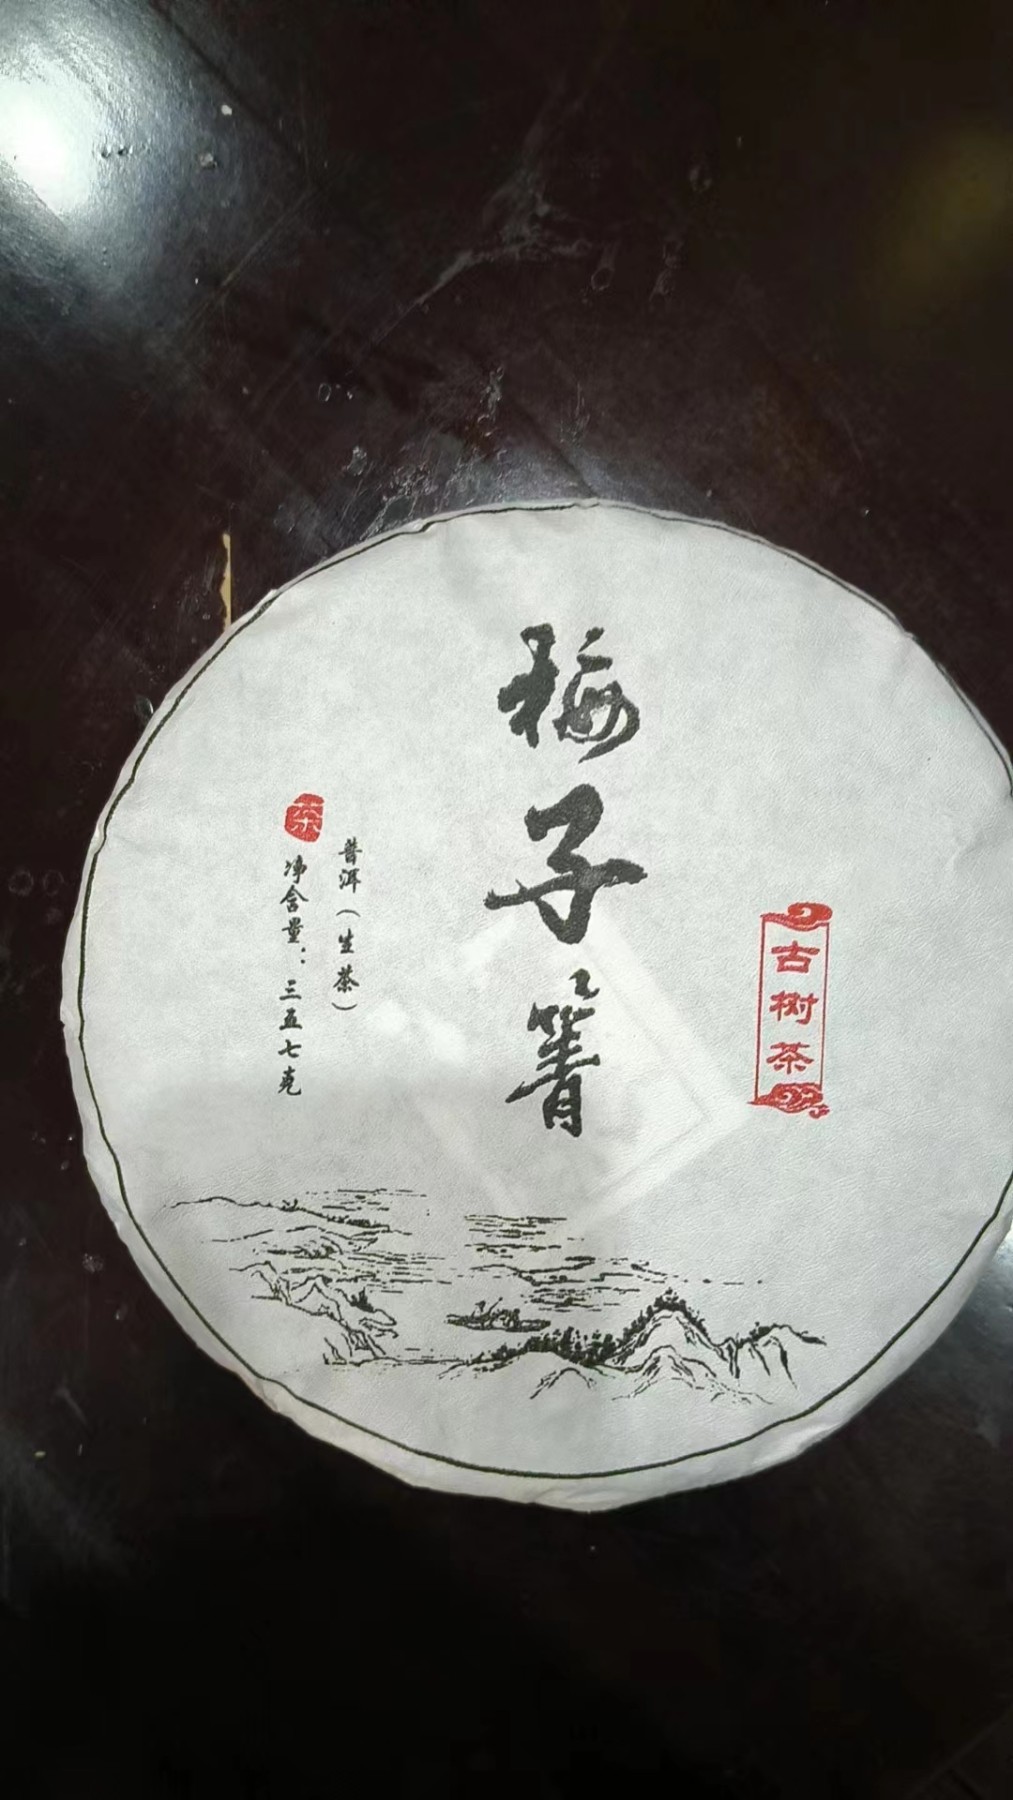 梅子箐
古树茶
普洱（生茶）
茶
净含量：三五七克